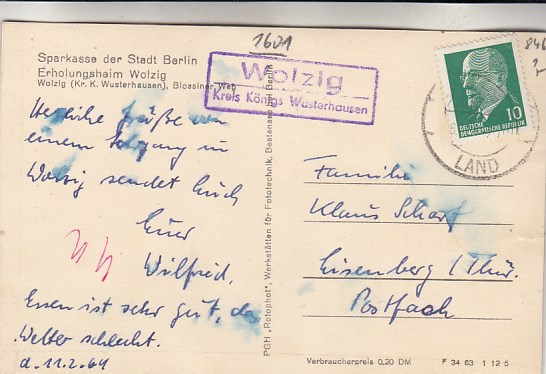 1601
846
Sparkasse der Stadt Berlin
Erholungsheim Wolzig
Wolzig (Kr. K. Wusterhausen), Blossiner Weg
Wolzig
Kreis Königs Wusterhausen
10
DEUTSCHE
DEMOKRATISCHE REPUBLIK
LAND
Herzliche Grüße von
einem Lehrgang in
Wolzig sendet Euch
Euer
Wilfried.
Essen ist sehr gut, das
Wetter schlecht.
d. 11.2.64
PGH „Rotophot“, Werkstätten für Fototechnik, Bestensee bei Berlin
Familie
Klaus Scharf
Eisenberg / Thür.
Postfach
Verbraucherpreis 0,20 DM F 34 63 1 12 5